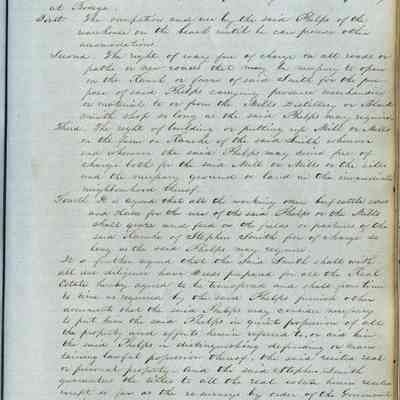 at Bodega.
First. The occupation and use by the said Phelps of the
warehouse on the beach until he can procure other
accomodations
Second. The right of way free of charge on all roads or
paths or new roads that may be necessary to open
on the Ranch or farm of said Smith for the pur
pose of said Phelps carrying produce merchandise
or material to or from the Mills Distillery or Black
smith shop so long as the said Phelps may require
Third. The right of building or putting up Mill or Mills
on the Farm or Rancho of the said Smith wherever
and whenever the said Phelps may desire free of
charge both for the said Mill or Mills or the sites
and the necessary ground or land in the immediate
neighbourhood thereof.
Fourth. It is agreed that all the working oxen beef cattle cows
and horses for the use of the said Phelps or the Mills
shall graze and feed on the fields or pastures of the
said Rancho of Stephen Smith free of charge so
long as the said Phelps may require.
It is further agreed that the said Smith shall with
all due diligence have Deeds prepared for all the Real
Estate hereby agreed to be transferred and shall from time
to time as required by the said Phelps furnish other
documents that the said Phelps may consider necessary
to put him the said Phelps in quiet possession of all
the property and effects herein referred to, or aid him
the said Phelps in distinguishing defending or main
taining lawful possession thereof, the said recited real
or personal property. And the said Stephen Smith
guarantees the titles to all the real estate herein recited
except so far as the reserves by order of the Government